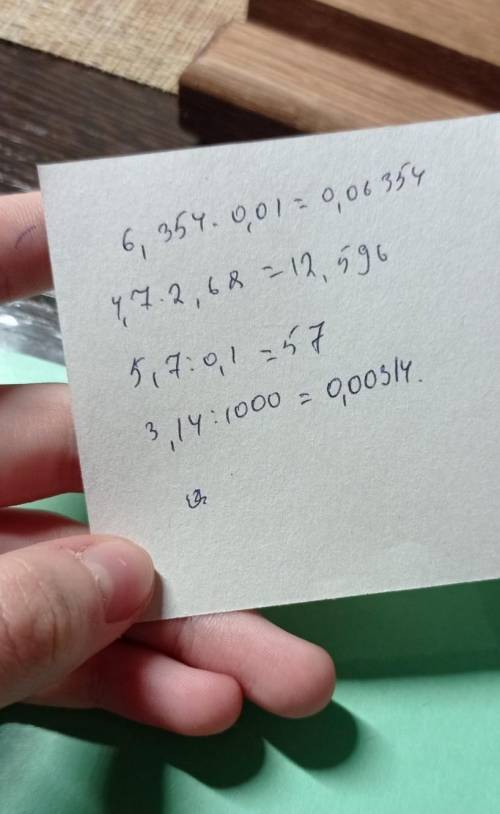 6,354·0,01=0,06354
4,7·2,68=12,596
5,7:0,1=57
3,14:1000=0,00314.